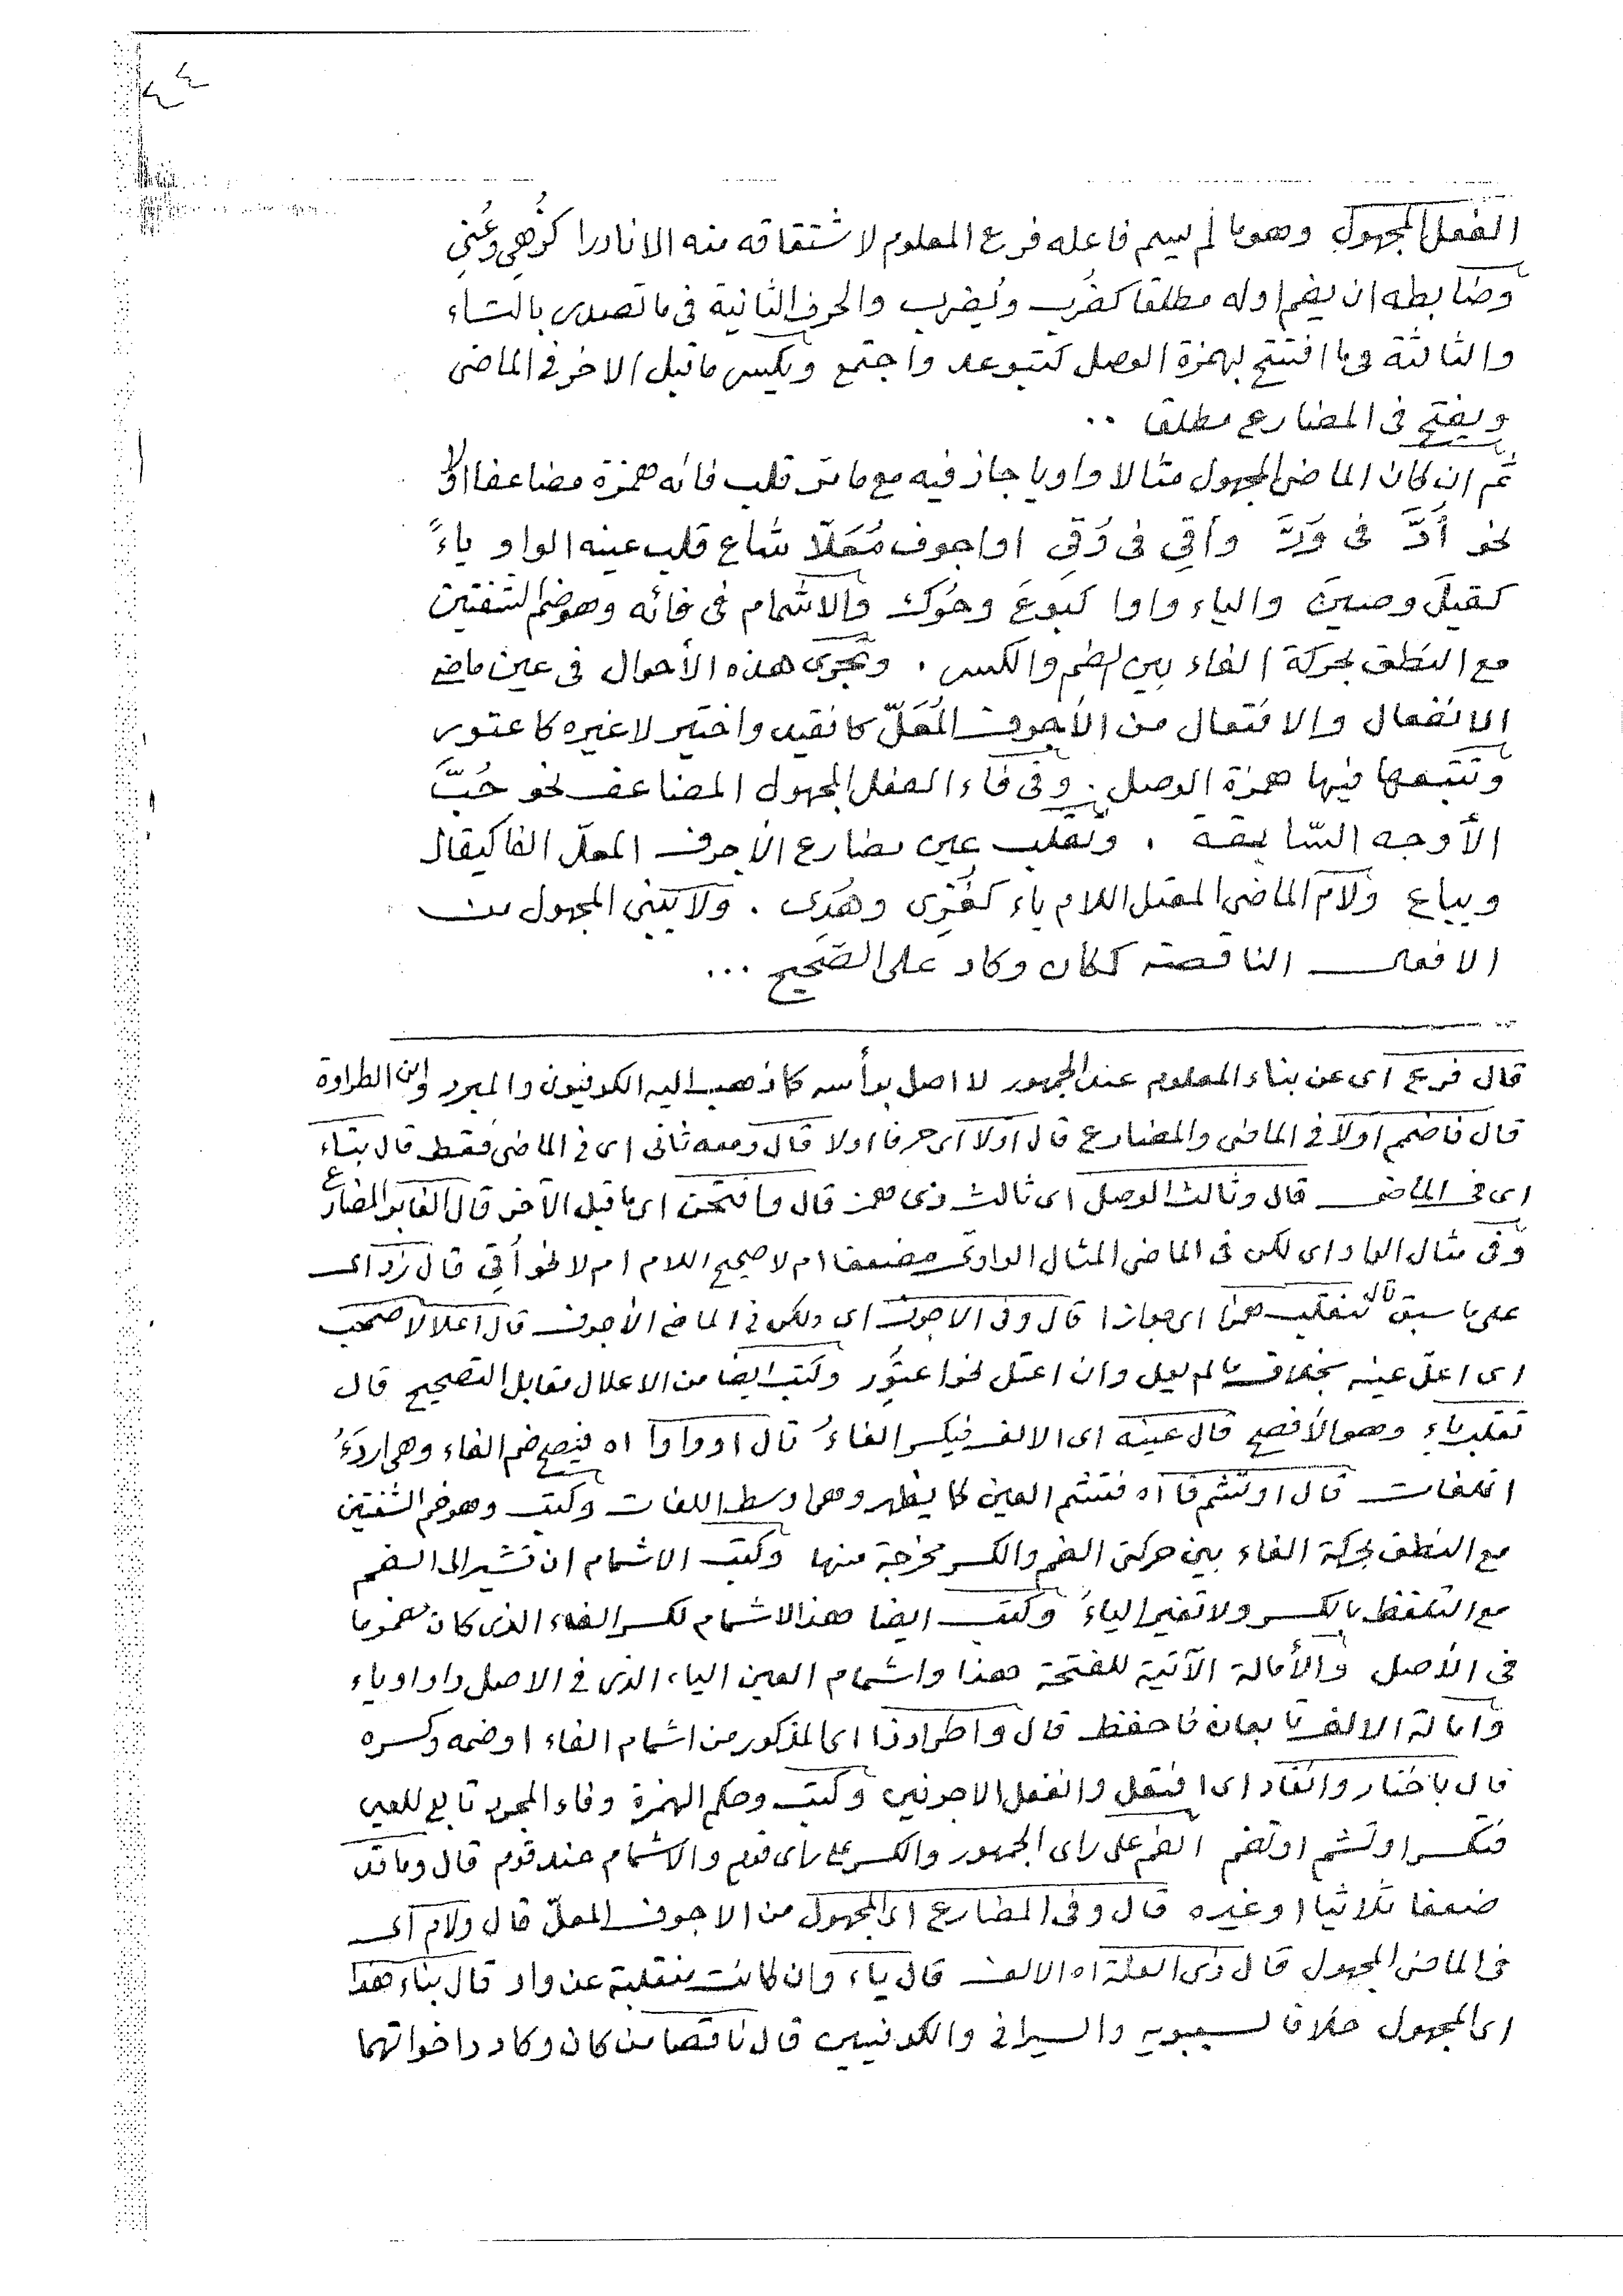 ٤٤
الفعل المجهول وهو ما لم يسم فاعله فرع المعلوم لاشتقاقه منه الا نادرا كزُهِي وعُنِي
وضابطه ان يضم اوله مطلقا كضُرب ويُضرب والحرف الثانية في ما تصدى بالتاء
والثالثة في ما افتتح بهمزة الوصل كتبوعد واجتمع ويكسر ما قبل الاخر في الماضي
ويفتح في المضارع مطلقا ..
ثم ان كان الماضي المجهول مثالا واويا جاز فيه مع ما مر قلب فائه همزة مضاعفا او لا
نحو أُدَّ في وُدَّ وأُقِي في وُقِي او اجوف مُعَلّا شاع قلب عينه الواو ياءً
كقيلَ وصينَ والياء واوا كبوعَ وحُوك والاشمام في فائه وهو ضم الشفتين
مع النطق بحركة الفاء بين الضم والكسر . وتجرى هذه الأحوال في عين ماضي
الانفعال والافتعال من الأجوف المُعَلّ كانقيد واختير لا غيره كاعتور
وتتبعها فيها همزة الوصل . وفي فاء الفعل المجهول المضاعف نحو حُبَّ
الأوجه السّابقة . وتقلب عين مضارع الأجوف المعلّ الفا كيقال
ويباع ولام الماضي المعتل اللام ياء كغُزِى وهُدِى . ولا يبنى المجهول من
الافعال الناقصة ككان وكاد على الصّحيح ...
قال فرع اى عن بناء المعلوم عند الجمهور لا اصل برأسه كما ذهب اليه الكوفيون والمبرد وابن الطراوة
قال فاضمم اولا في الماضي والمضارع قال اولا اى حرفا اولا قال ومعه ثاني اى في الماضي فقط قال بتاء
اى في الماضي قال وثالث الوصل اى ثالث ذى همز قال وافتحن اى ما قبل الآخر قال الغابر المضارع
وفي مثال الواو اى لكن في الماضي المثال الواوى مضعفا ام لا صحيح اللام ام لا نحو أُقِي قال زد اى
على ما سبق قال تنقلب همزا اى جوازا قال وفي الاجوف اى ولكن في الماضي الأجوف قال اعلالا صحب
اى اعلّ عينه بخلاف ما لم يعل وان اعتل نحو اعتُوِر وكتب ايضا من الاعلال مقابل التصحيح قال
تقلب ياء وهو الأفصح قال عينه اى الالف فيكسر الفاءُ قال او واوا اه فيصح ضم الفاء وهي اردءُ
اللغات قال او تشم فا اه فتشم العين كما يظهر وهي اوسط اللغات وكتب وهو ضم الشفتين
مع النطق بحركة الفاء بين حركتي الضم والكسر مخرجة منها وكتب الاشمام ان تشير الى الضم
مع التلفظ بالكسر ولا تغير الياءُ وكتب ايضا هذا الاشمام لكسر الفاء الذى كان مضموما
في الأصل والأمالة الآتية للفتحة هذا واشمام العين الياء الذى في الاصل واو او ياء
وامالة الالف تابعان فاحفظ قال واطرد ذا اى المذكور من اشمام الفاء او ضمه وكسره
قال باختار وانقاد اى افتعل وانفعل الاجوفين وكتب وحكم الهمزة وفاء المجرد تابع للعين
فتكسر او تشم او تضم الضم على راى الجمهور والكسر على راى قوم والاشمام عند قوم قال وما قد
ضعفا ثلاثيا او غيره قال وفي المضارع اى المجهول من الاجوف المعلّ قال ولام اى
في الماضي المجهول قال ذى العلة اه الالف قال ياء وان كانت منقلبة عن واو قال بناء هذا
اى المجهول خلافا لسيبويه والسيرافي والكوفيين قال ناقصا من كان وكاد واخواتهما